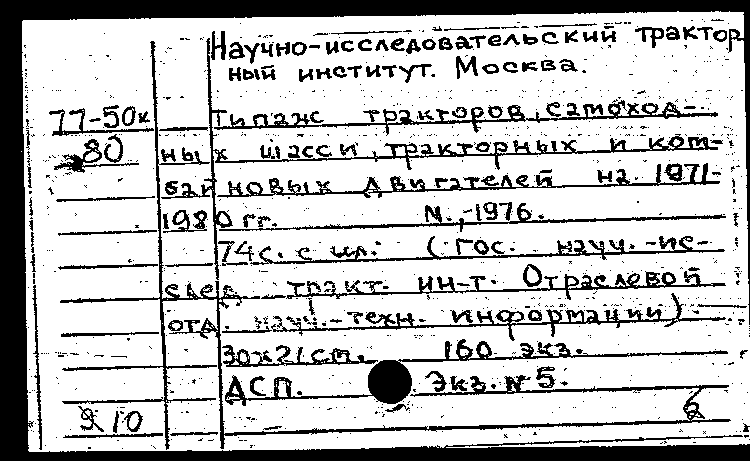 Научно-исследовательский трактор
ный институт. Москва.
77-50к Типаж тракторов, самоход-
80 ных шасси, тракторных и ком-
байновых двигателей на 1971-
1980 гг. М.,-1976.
74с. с ил. (Гос. науч.-ис-
след. тракт. ин-т. Отраслевой
отд. науч.-техн. информации).
30х21см. 160 экз.
ДСП. Экз. № 5.
10 б